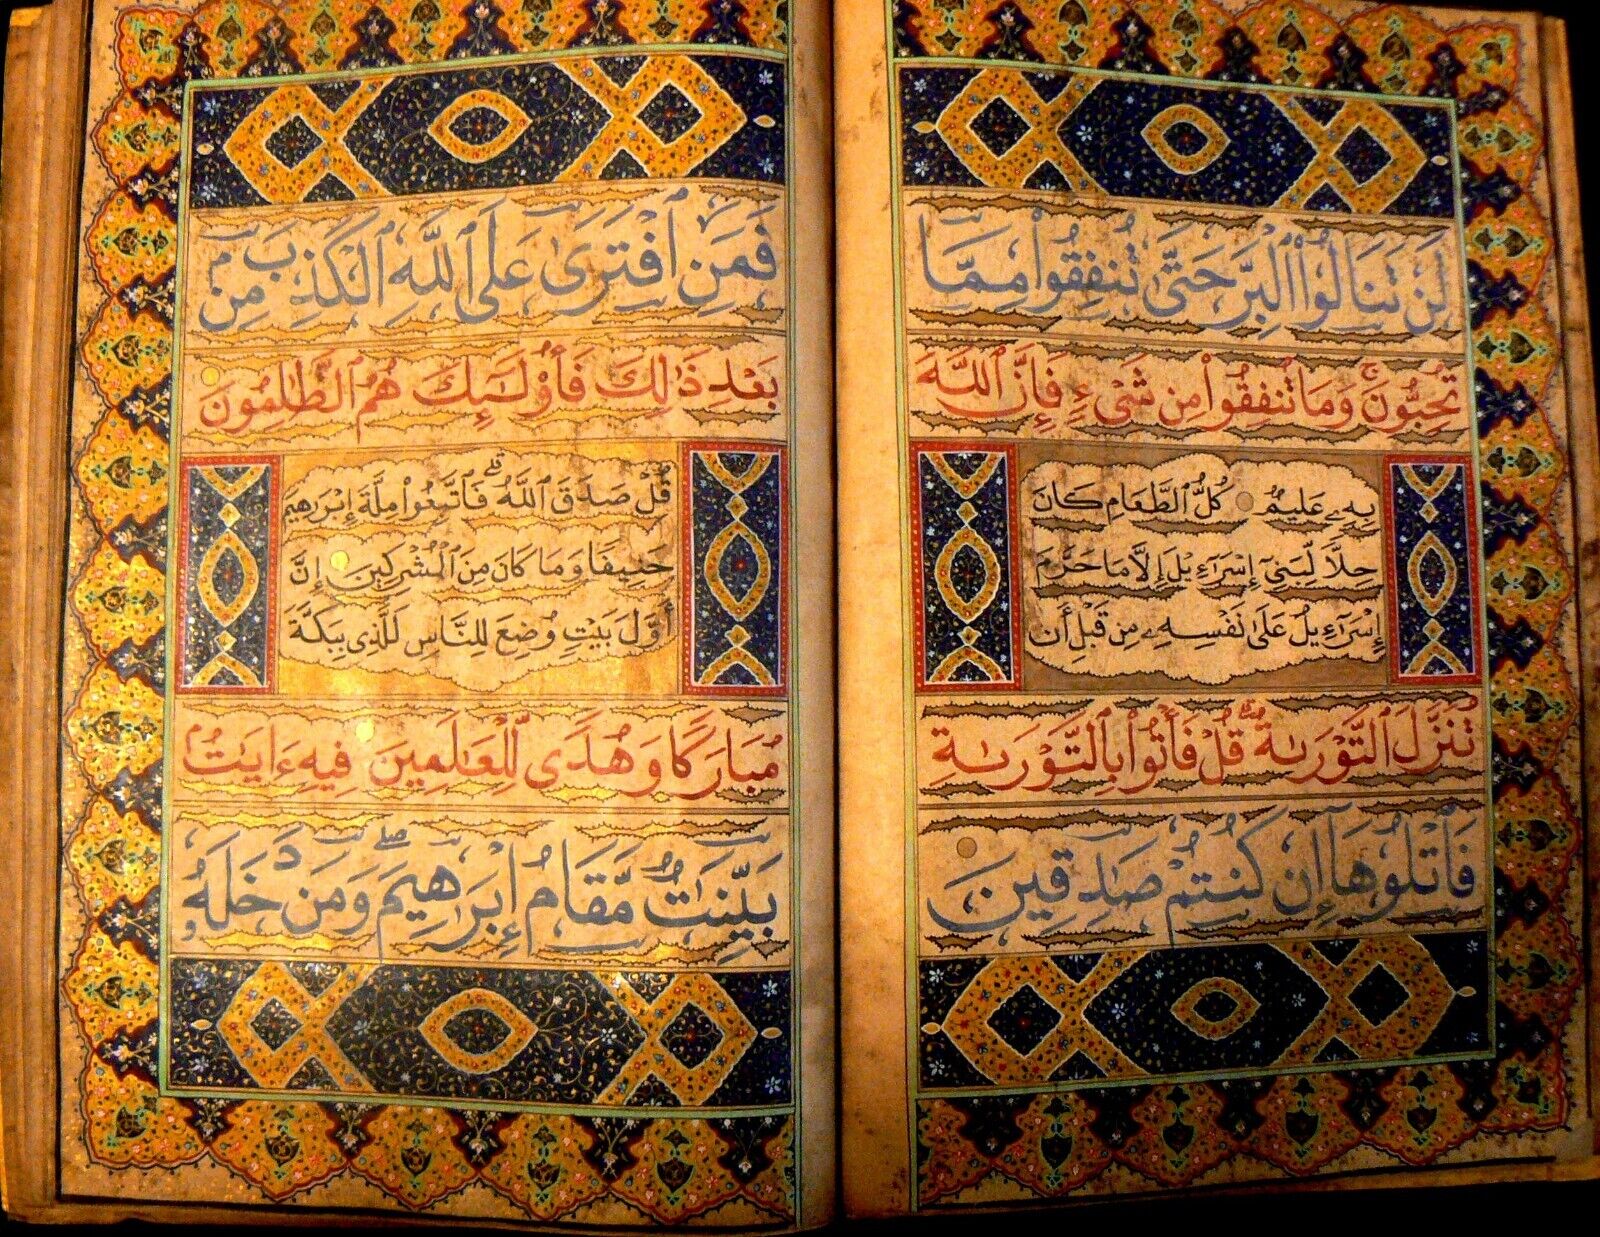 لَن تَنَالُوا۟ ٱلْبِرَّ حَتَّىٰ تُنفِقُوا۟ مِمَّا
تُحِبُّونَ ۚ وَمَا تُنفِقُوا۟ مِن شَىْءٍ فَإِنَّ ٱللَّهَ
بِهِۦ عَلِيمٌ كُلُّ ٱلطَّعَامِ كَانَ
حِلًّا لِّبَنِىٓ إِسْرَٰٓءِيلَ إِلَّا مَا حَرَّمَ
إِسْرَٰٓءِيلُ عَلَىٰ نَفْسِهِۦ مِن قَبْلِ أَن
تُنَزَّلَ ٱلتَّوْرَىٰةُ ۗ قُلْ فَأْتُوا۟ بِٱلتَّوْرَىٰةِ
فَٱتْلُوهَآ إِن كُنتُمْ صَٰدِقِينَ
فَمَنِ ٱفْتَرَىٰ عَلَى ٱللَّهِ ٱلْكَذِبَ مِنۢ
بَعْدِ ذَٰلِكَ فَأُو۟لَٰٓئِكَ هُمُ ٱلظَّٰلِمُونَ
قُلْ صَدَقَ ٱللَّهُ ۗ فَٱتَّبِعُوا۟ مِلَّةَ إِبْرَٰهِيمَ
حَنِيفًا وَمَا كَانَ مِنَ ٱلْمُشْرِكِينَ إِنَّ
أَوَّلَ بَيْتٍ وُضِعَ لِلنَّاسِ لَلَّذِى بِبَكَّةَ
مُبَارَكًا وَهُدًى لِّلْعَٰلَمِينَ فِيهِ ءَايَٰتٌۢ
بَيِّنَٰتٌ مَّقَامُ إِبْرَٰهِيمَ ۖ وَمَن دَخَلَهُۥ